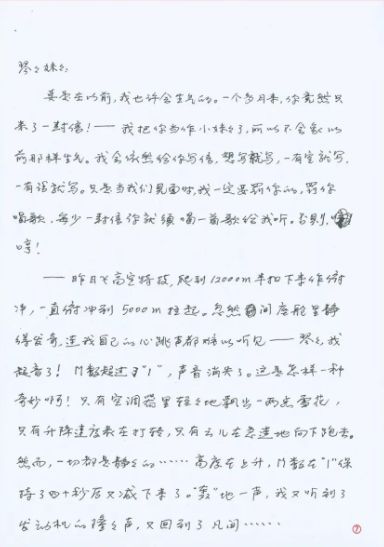 琴々妹々
要是在以前,我也许会生气的。一个多月来,你竟然只
来了一封信!——我把你当作小妹々了,所以不会象以
前那样生气。我会依然给你写信,想写就写,一有空就写,
一有话就写。只是当我们见面时,我一定要罚你的,罚你
唱歌,每少一封信你就须唱一首歌给我听。否则,
哼!
——昨日飞高空特技,爬到12000m半扣下来作俯
冲,一直俯冲到5000m拉起。忽然间座舱里静
得出奇,连我自己的心跳声都难以听见——琴々,我
超音了!M数超过了"1",声音消失了。这是怎样一种
奇妙啊!只有空调箱里轻々地飘出一两点雪花,
只有升降速度表在打转,只有云儿在急速地向下跑去。
然而,一切都是静々的……高度在上升,M数在"1"保
持了四十秒后又减下来了。"轰"地一声,我又听到了
发动机的隆々声,又回到了凡间……
⑦